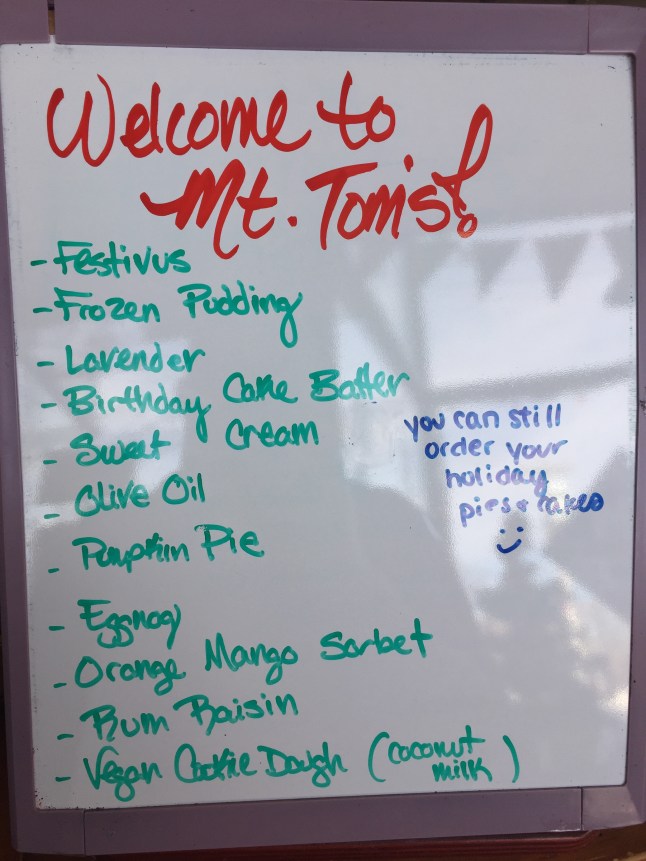 Welcome to
Mt. Tom's!
- Festivus
- Frozen Pudding
- Lavender
- Birthday Cake Batter
- Sweet Cream
- Olive Oil
- Pumpkin Pie
- Eggnog
- Orange Mango Sorbet
- Rum Raisin
- Vegan Cookie Dough (coconut
milk)
you can still
order your
holiday
pies & cakes